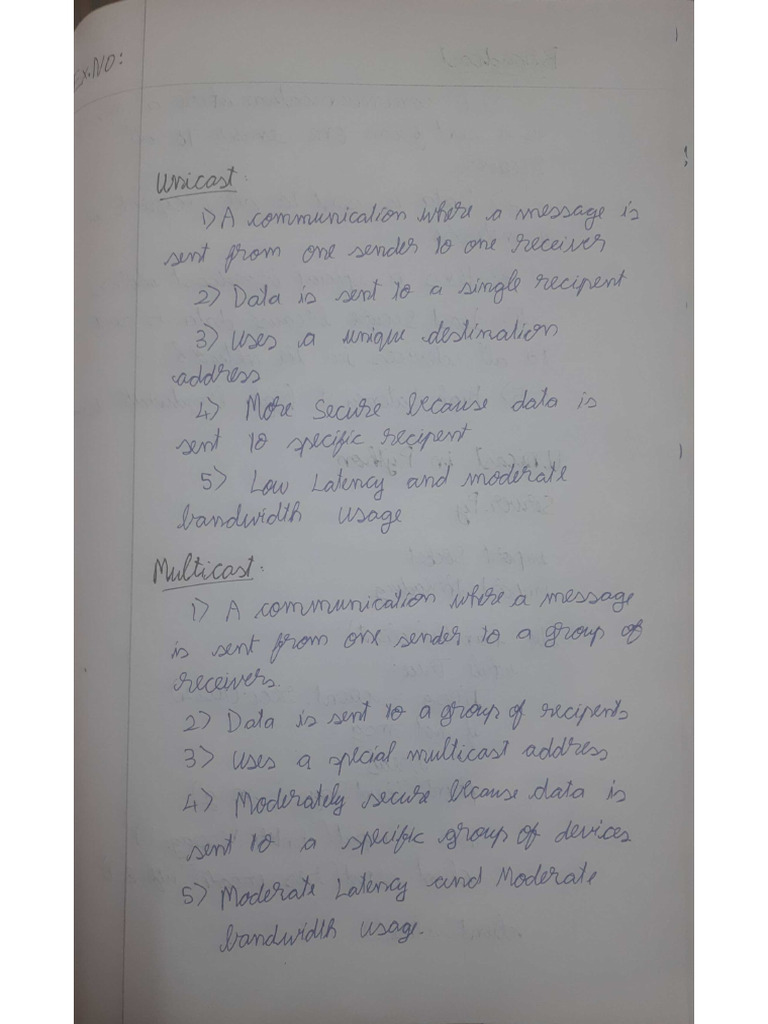 Ex.NO:
Unicast:
1) A communication where a message is
sent from one sender to one receiver
2) Data is sent to a single recipent
3) Uses a unique destination
address
4) More Secure because data is
sent to specific recipent
5) Low Latency and moderate
bandwidth usage
Multicast:
1) A communication where a message
is sent from one sender to a group of
receivers.
2) Data is sent to a group of recipents
3) Uses a special multicast address
4) Moderately secure because data is
sent to a specific group of devices
5) Moderate Latency and Moderate
bandwidth usage.